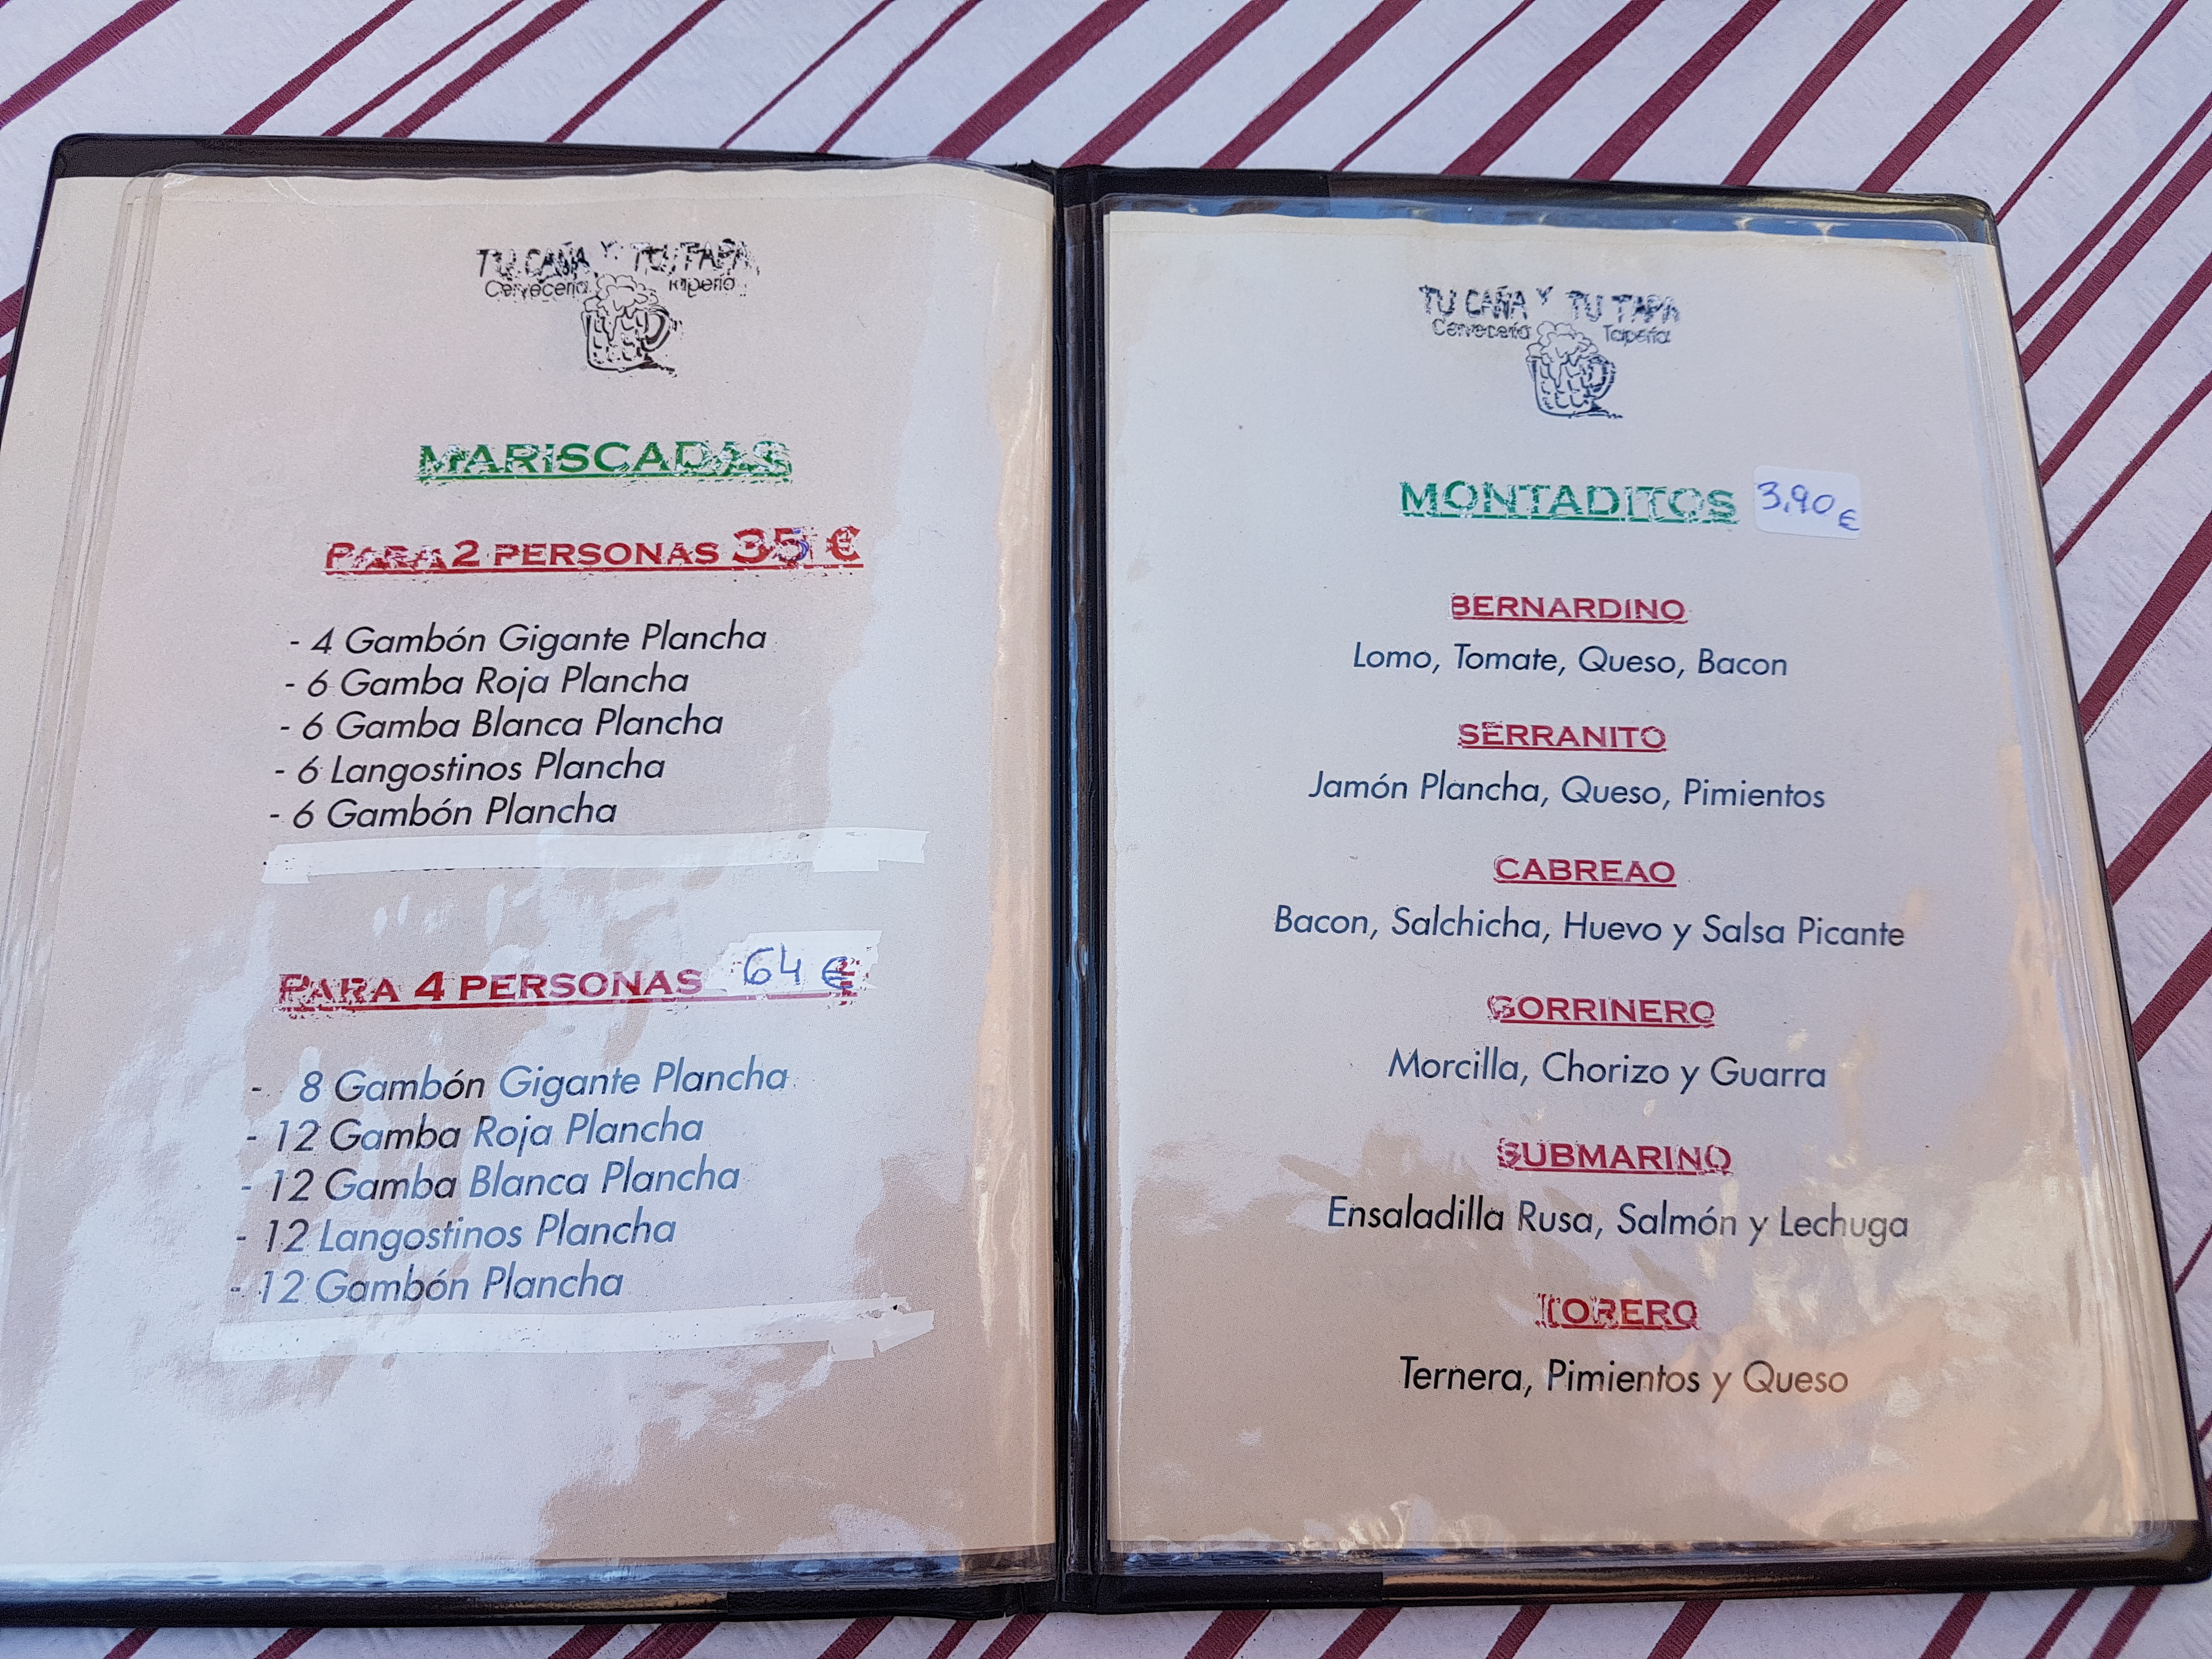 TU CAÑA Y TU TAPA
Cervecería Tapería
MARISCADAS
PARA 2 PERSONAS 35 €
- 4 Gambón Gigante Plancha
- 6 Gamba Roja Plancha
- 6 Gamba Blanca Plancha
- 6 Langostinos Plancha
- 6 Gambón Plancha
PARA 4 PERSONAS 64 €
- 8 Gambón Gigante Plancha
- 12 Gamba Roja Plancha
- 12 Gamba Blanca Plancha
- 12 Langostinos Plancha
- 12 Gambón Plancha
TU CAÑA Y TU TAPA
Cervecería Tapería
MONTADITOS 3,90 €
BERNARDINO
Lomo, Tomate, Queso, Bacon
SERRANITO
Jamón Plancha, Queso, Pimientos
CABREAO
Bacon, Salchicha, Huevo y Salsa Picante
GORRINERO
Morcilla, Chorizo y Guarra
SUBMARINO
Ensaladilla Rusa, Salmón y Lechuga
TORERO
Ternera, Pimientos y Queso